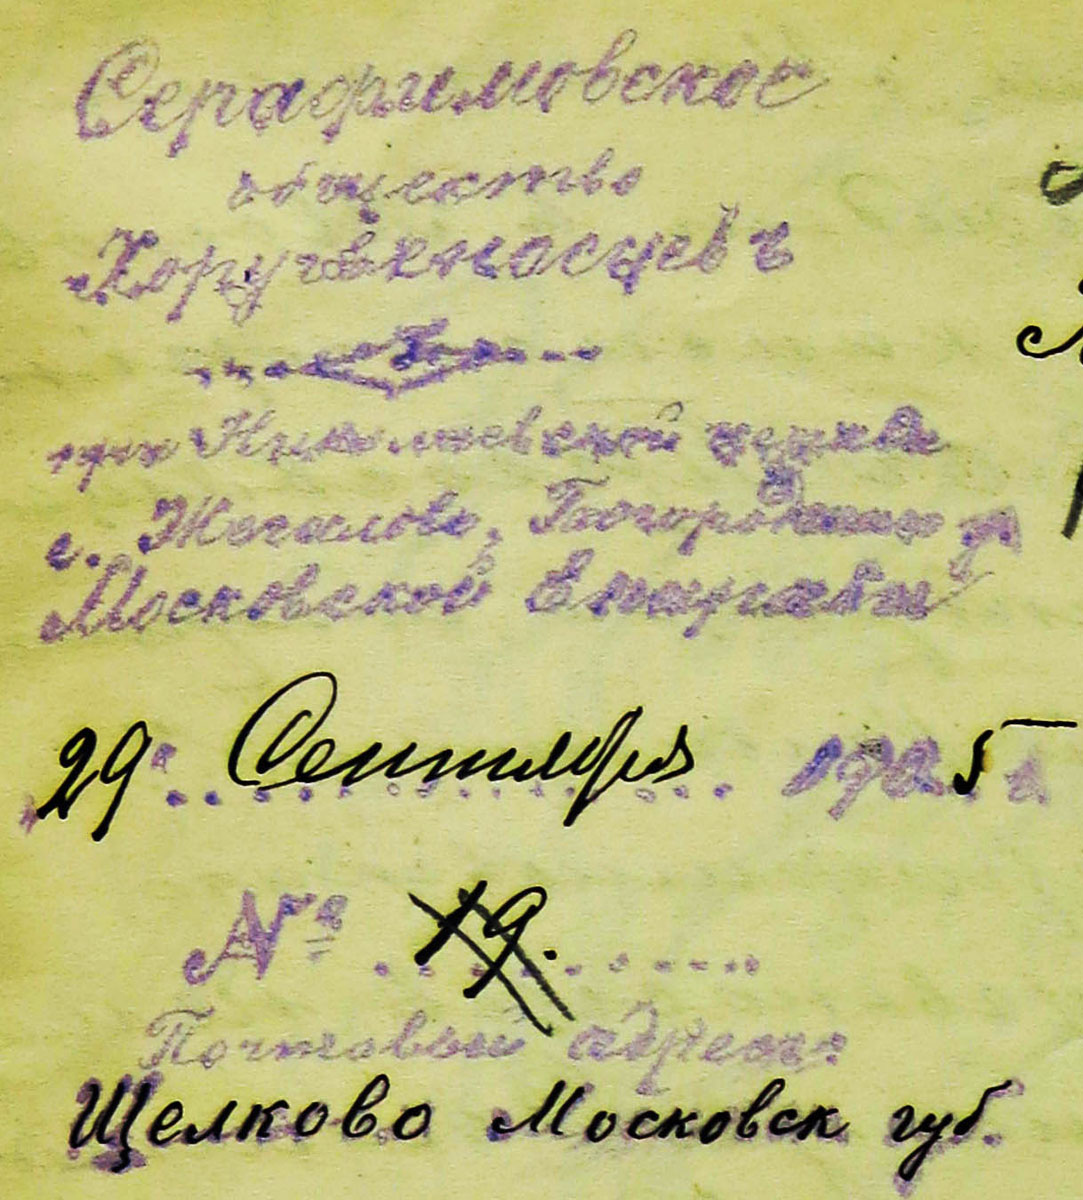 Серафимовское
общество
Хоругвеносцевъ
при Николаевской церкви
с. Жегалово, Богородскаго у.
Московской Епархіи
29 Сентября 1905 г.
№ 19.
Почтовый адресъ:
Щелково Московск губ.